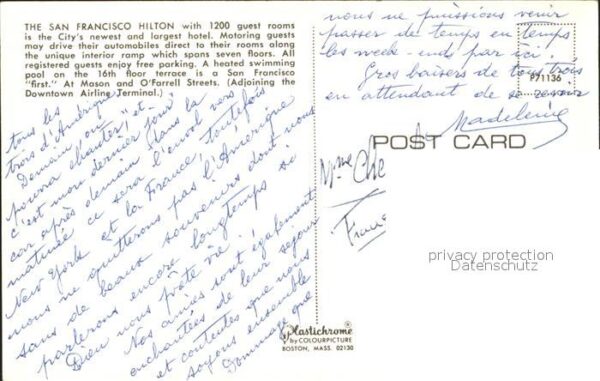 THE SAN FRANCISCO HILTON with 1200 guest rooms
is the City's newest and largest hotel. Motoring guests
may drive their automobiles direct to their rooms along
the unique interior ramp which spans seven floors. All
registered guests enjoy free parking. A heated swimming
pool on the 16th floor terrace is a San Francisco
"first." At Mason and O'Farrell Streets. (Adjoining the
Downtown Airline Terminal.)
tous les
trois d'Amérique
Demain on
pourra chanter "et
c'est mon dernier jour" là
car après demain dans la
matinée ce sera l'envol vers
New York et la France toutefois
nous ne quitterons pas l'Amérique
sans de beaux souvenirs dont nous
parlerons encore longtemps si
Dieu nous prête vie !
Nos amies sont également
enchantées de leur séjour
et contentes que nous
soyons ensemble
Dommage que
nous ne puissions venir
passer de temps en temps
les week-ends par ici.
Gros baisers de tous trois
en attendant de se revoir
Madeleine
P71136
POST CARD
Mme Che
France
privacy protection
Datenschutz
Plastichrome
by COLOURPICTURE
BOSTON, MASS. 02130